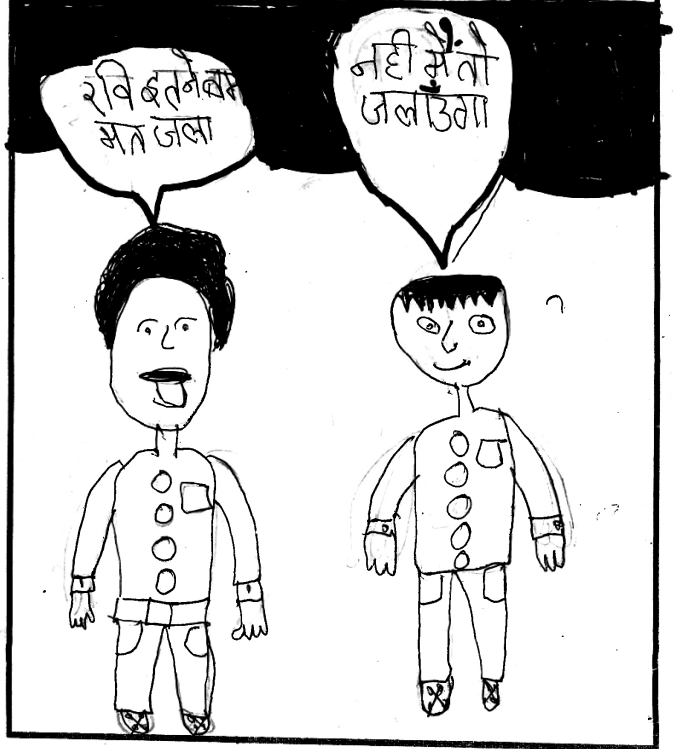 रवि इतने बम
मत जला
नही मैं तो
जलाउँगा